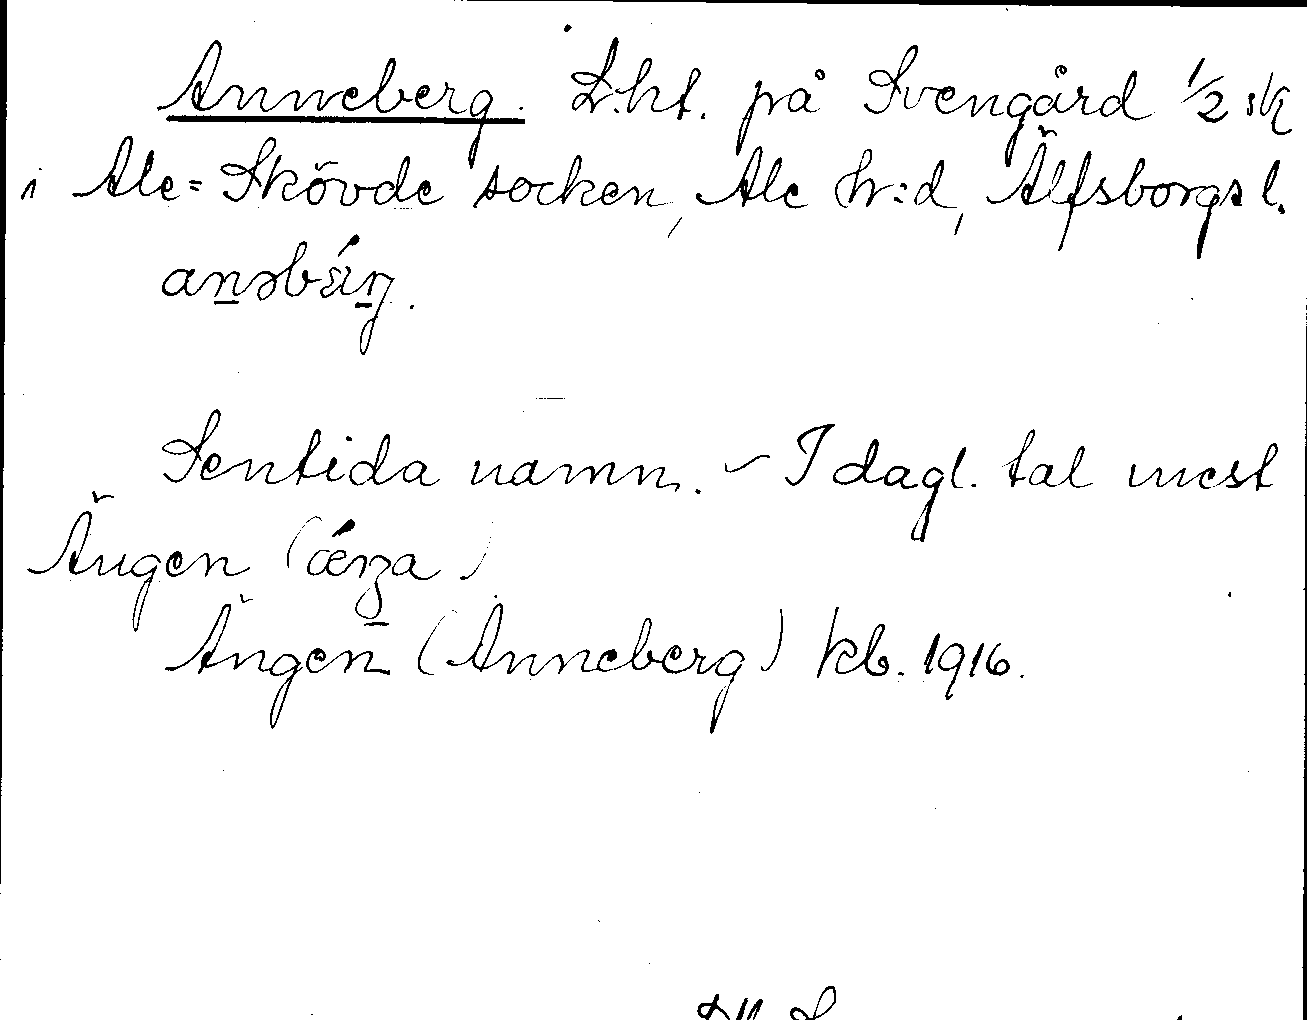 Anneberg. L.ht. på Svengård 1/2 sk
i Ale-Skövde socken, Ale hr:d, Älfsborgs l.
Sentida namn. – I dagl. tal mest
Ängen
Ängen (Anneberg) kb. 1916.